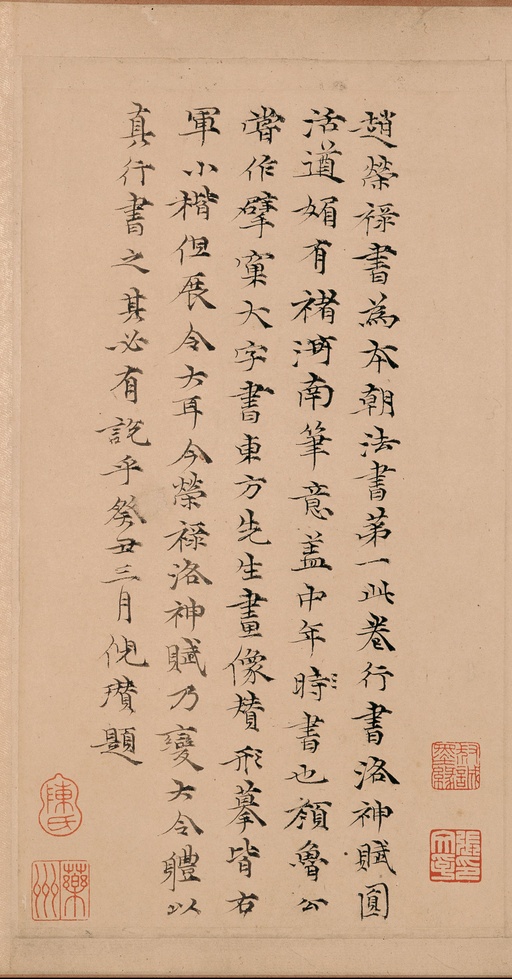 趙榮祿書為本朝法書第一此卷行書洛神賦圓
活遒媚有褚河南筆意盖中年時書也顏魯公
嘗作擘窠大字書東方先生畫像贊形摹皆右
軍小楷但展令大耳今榮祿洛神賦乃變大令體以
真行書之其必有說乎癸丑三月倪瓚題
陳氏